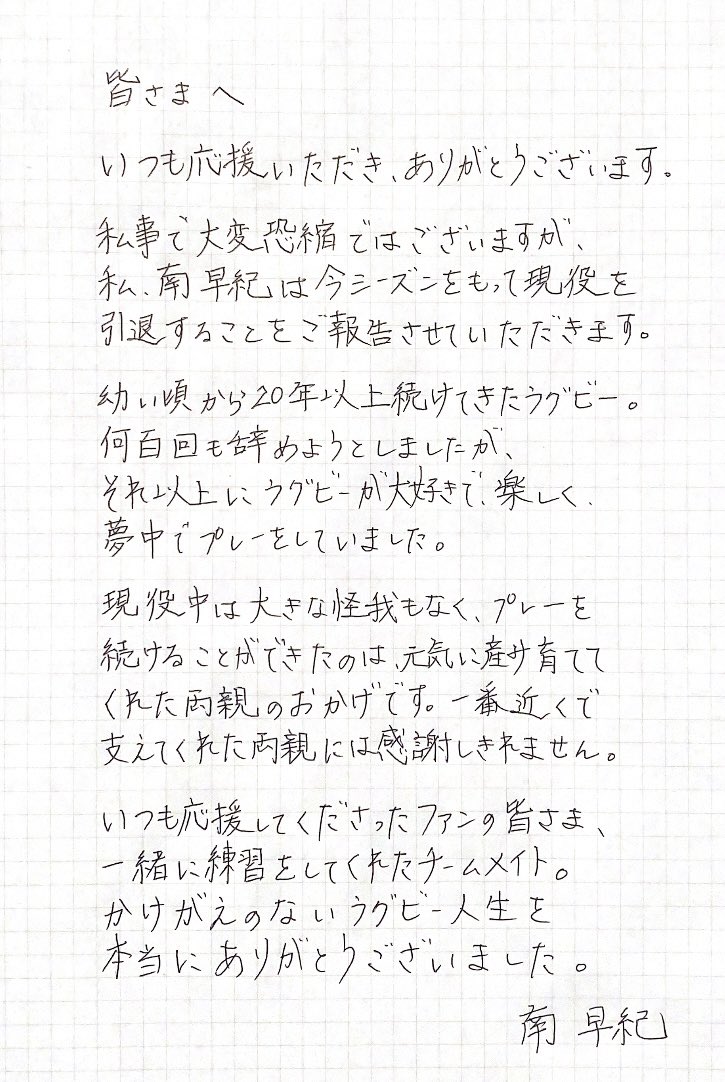 皆さまへ
いつも応援いただき、ありがとうございます。
私事で大変恐縮ではございますが、
私、南早紀は今シーズンをもって現役を
引退することをご報告させていただきます。
幼い頃から20年以上続けてきたラグビー。
何百回も辞めようとしましたが、
それ以上にラグビーが大好きで、楽しく、
夢中でプレーをしていました。
現役中は大きな怪我もなく、プレーを
続けることができたのは、元気に産み育てて
くれた両親のおかげです。一番近くで
支えてくれた両親には感謝しきれません。
いつも応援してくださったファンの皆さま、
一緒に練習をしてくれたチームメイト。
かけがえのないラグビー人生を
本当にありがとうございました。
南 早紀